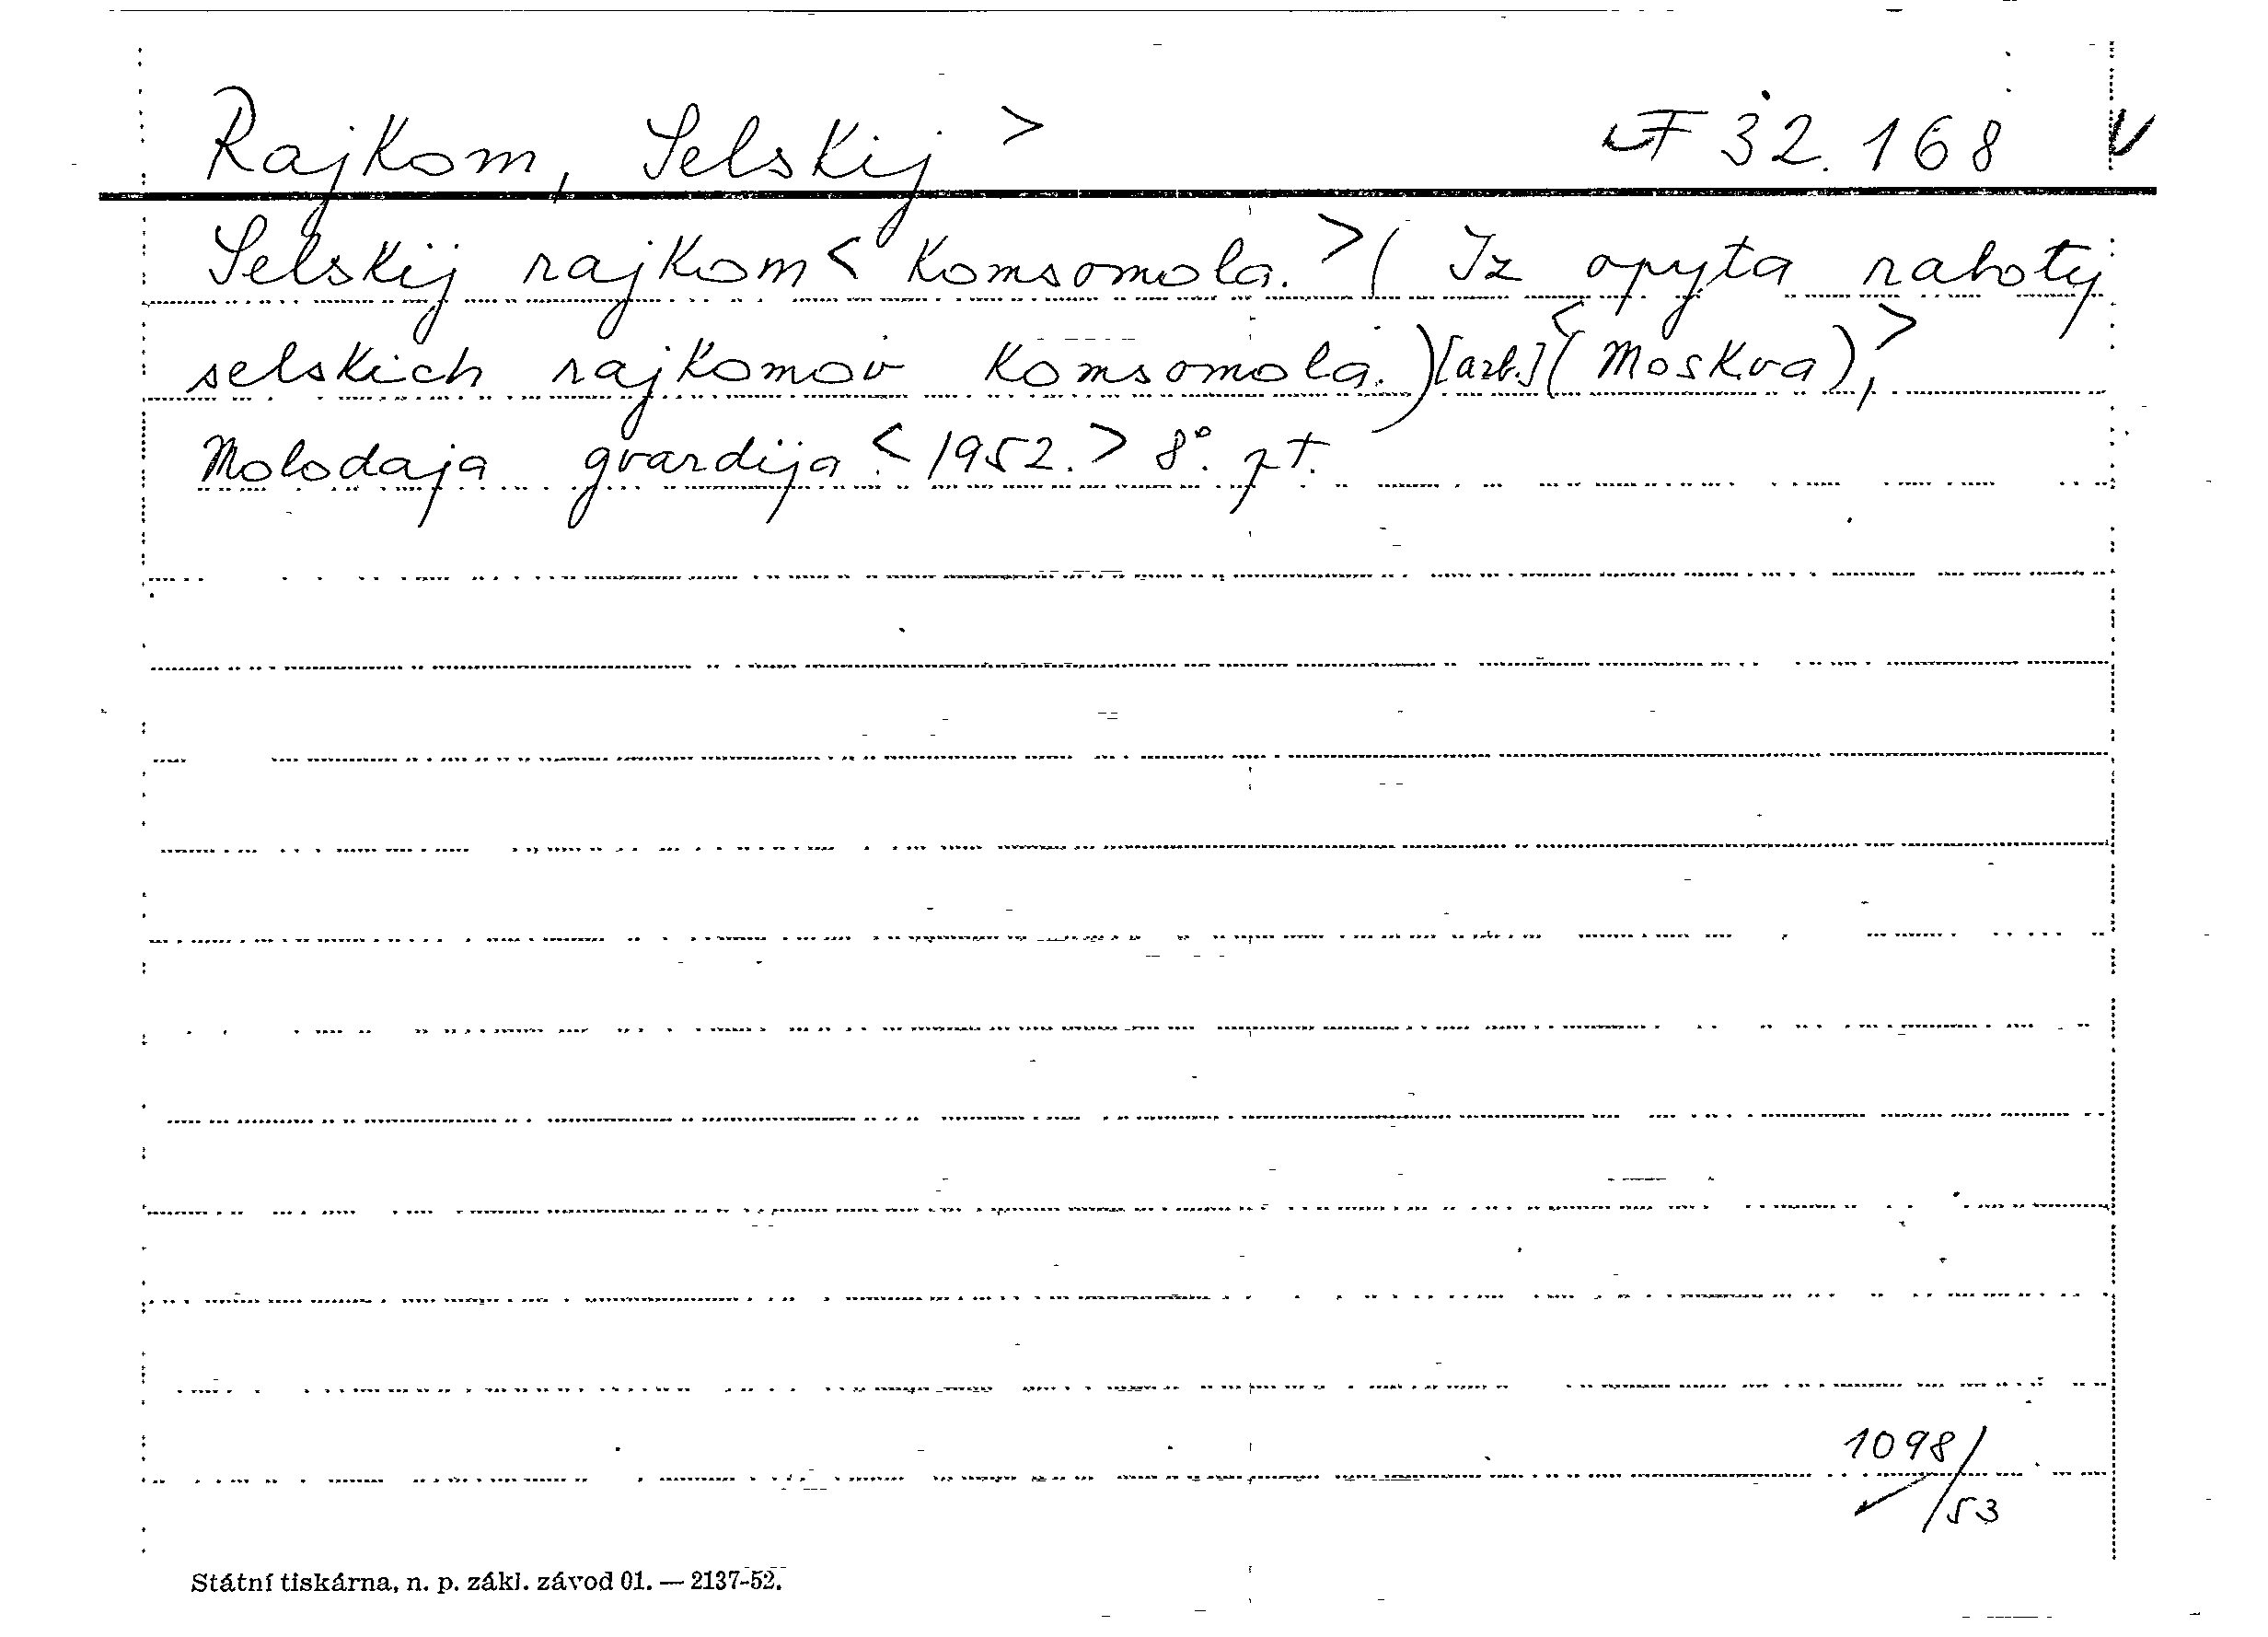 Rajkom, Selskij > F 32.168 V
Selskij rajkom < komsomola. > ( Iz opyta raboty
selskich rajkomov komsomola.) [azb.] < ( Moskva), >
Molodaja gvardija < 1952. > 8°. pt.
1098/
/53
Státní tiskárna, n. p. zákl. závod 01. — 2137-52.